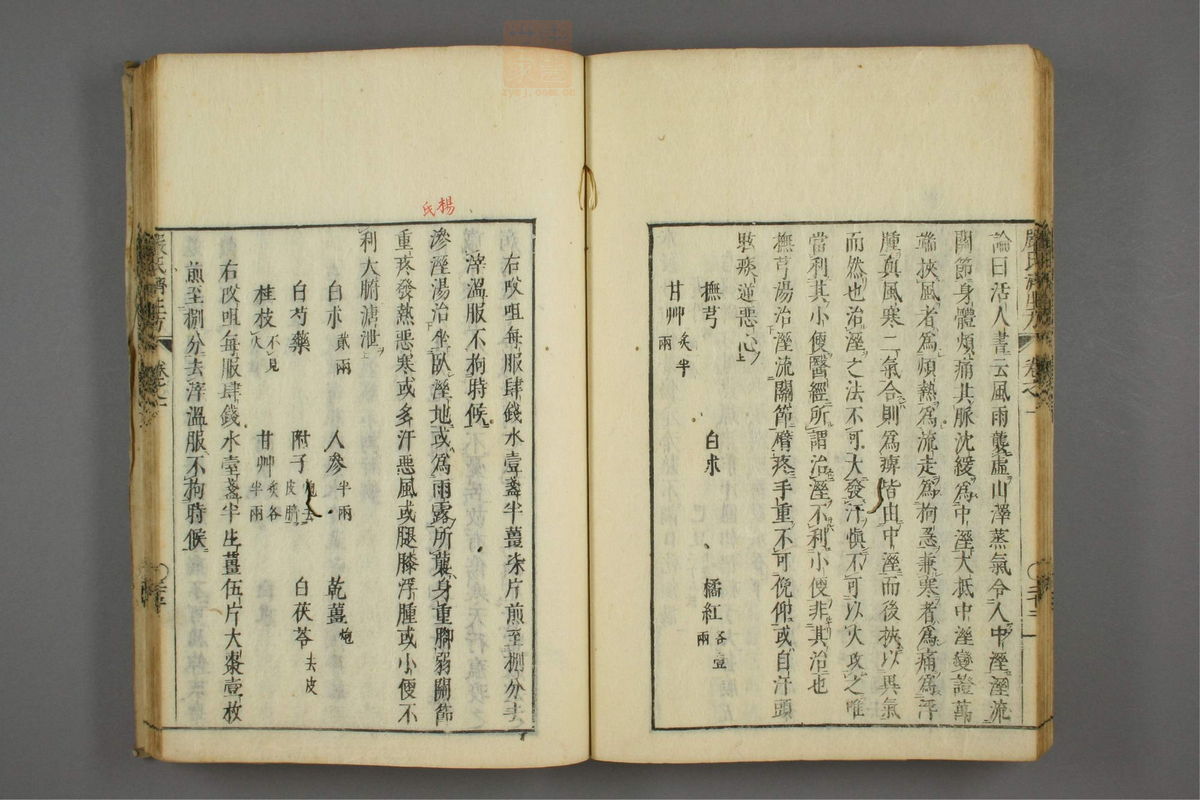 論曰活人書云風雨襲虛山澤蒸氣令人中溼溼流
關節身體煩痛其脉沈緩爲中溼大抵中溼變證萬
端挾風者爲煩熱爲流走爲拘急兼寒者爲痛爲浮
腫與風寒二氣合則爲痹皆由中溼而後挾以異氣
而然也治溼之法不可大發汗愼不可以火攻之唯
當利其小便醫經所謂治溼不利小便非其治也
撫芎湯治溼流關節臂疼手重不可俛仰或自汗頭
眩痰逆惡心
撫芎 白朮 橘紅各壹兩
甘艸炙半兩
嚴氏濟生方 卷之一
右㕮咀每服肆錢水壹盞半薑柒片煎至捌分去
滓溫服不拘時候
楊氏
滲溼湯治坐臥溼地或爲雨露所襲身重腳弱關節
重疼發熱惡寒或多汗惡風或腿膝浮腫或小便不
利大腑溏泄
白朮貳兩 人參半兩 乾薑炮
白芍藥 附子炮去皮臍 白茯苓去皮
桂枝不見火 甘艸炙各半兩
右㕮咀每服肆錢水壹盞半生薑伍片大棗壹枚
煎至捌分去滓溫服不拘時候
嚴氏濟生方 卷之一
zysj.com.cn